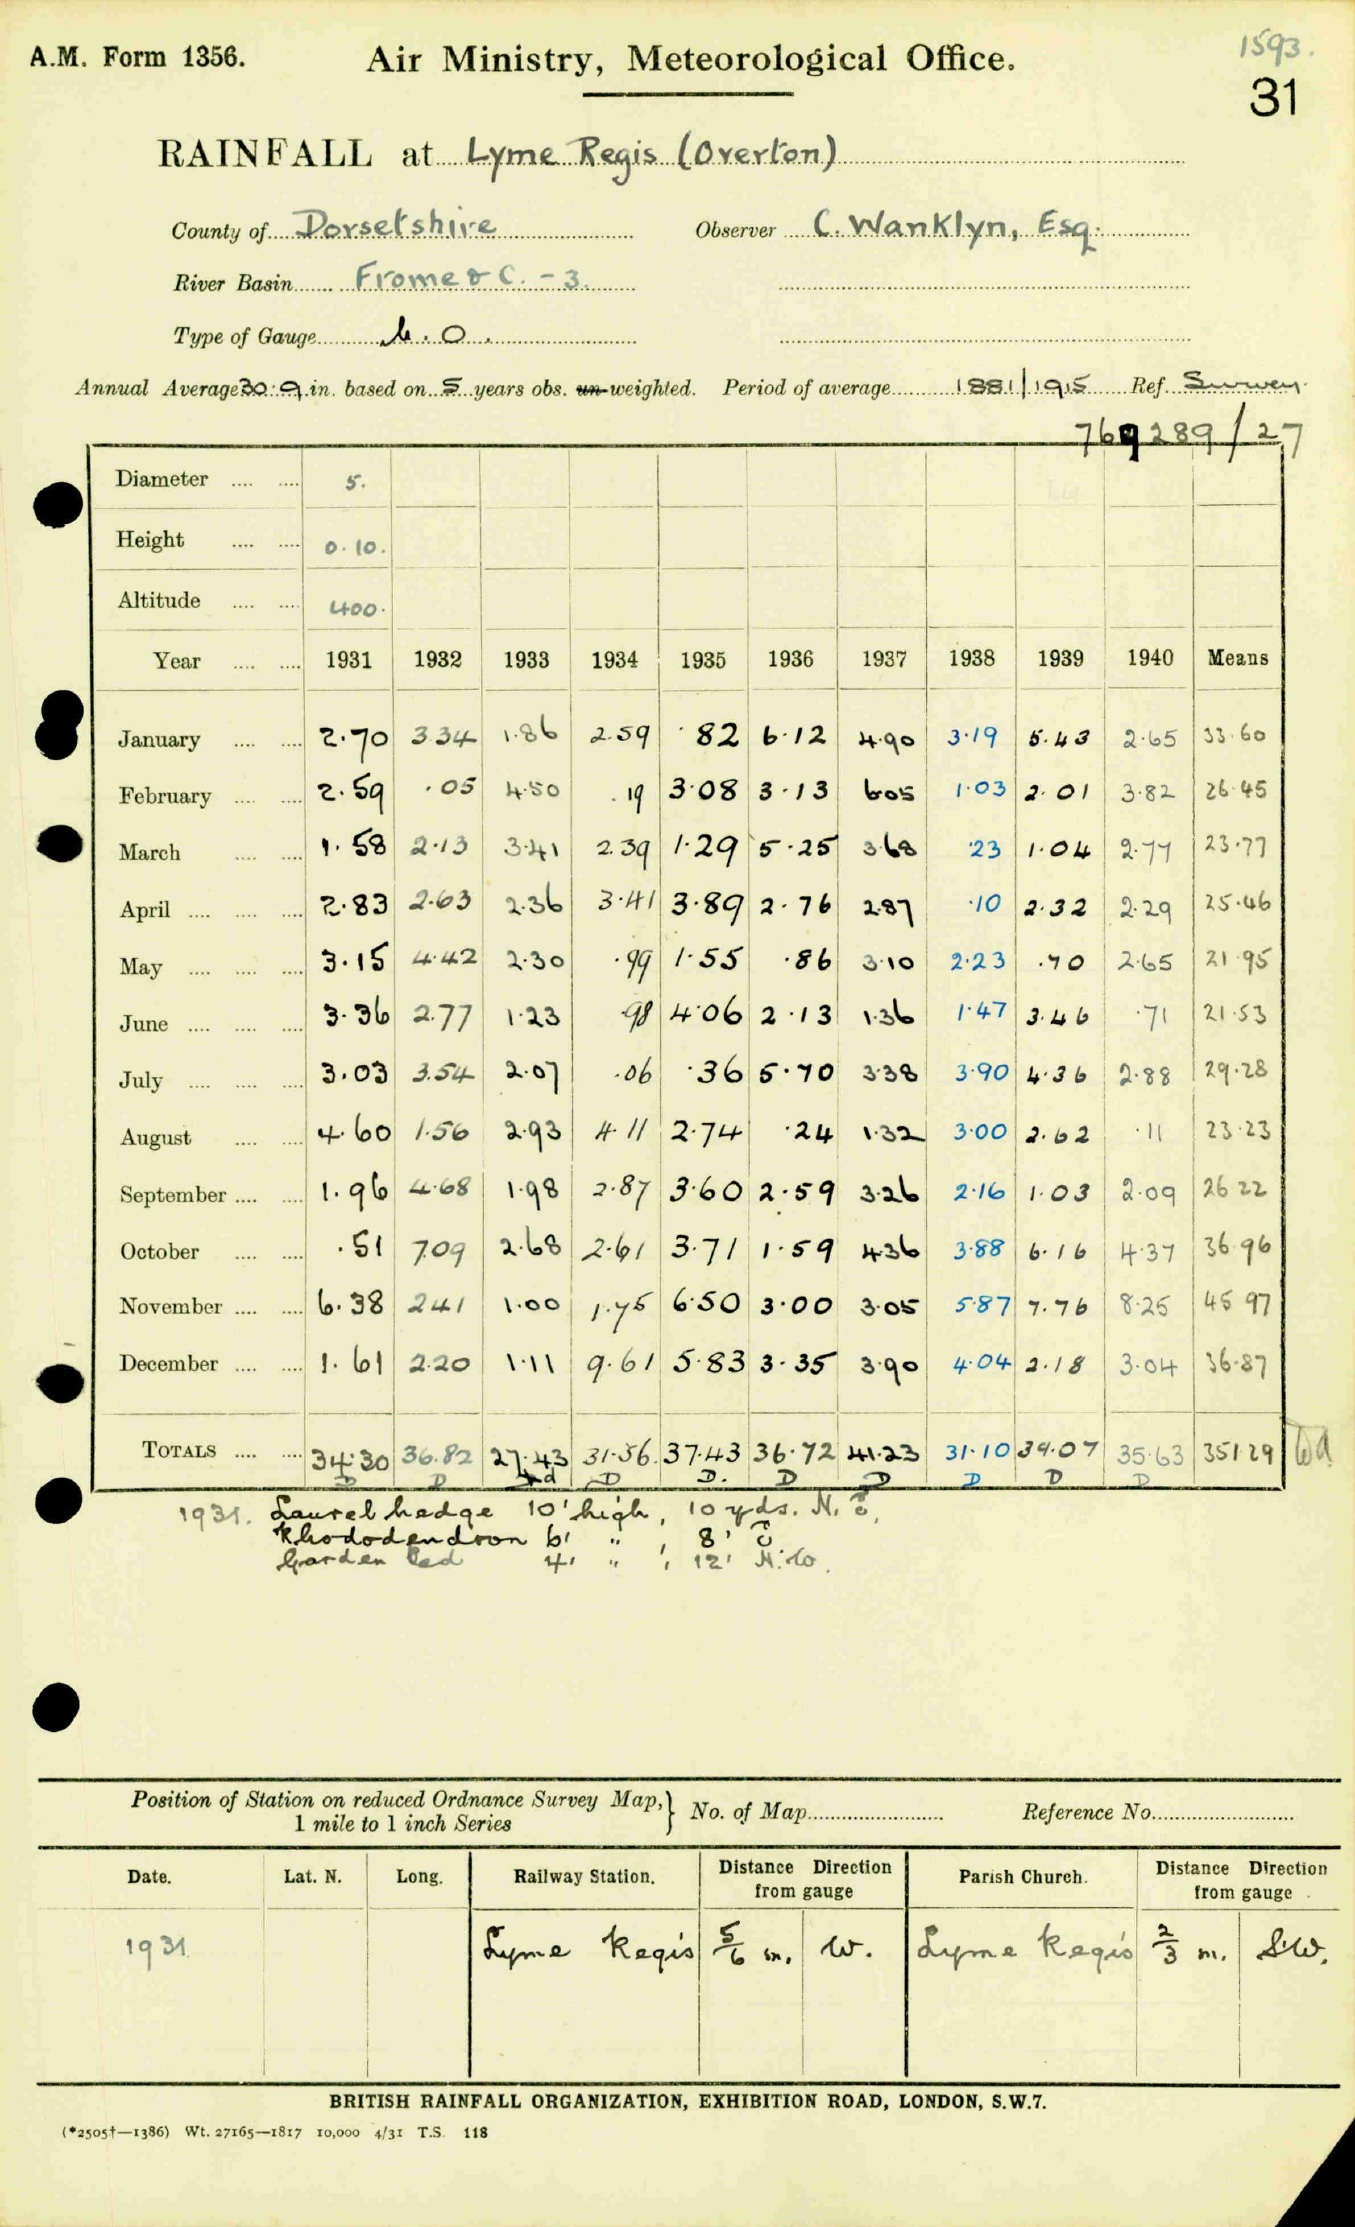 1593.
A.M. Form 1356. Air Ministry, Meteorological Office.
31
RAINFALL at Lyme Regis (Overton)
County of Dorsetshire Observer C. Wanklyn, Esq.
River Basin Frome & C. - 3.
Type of Gauge M.O.
Annual Average 30.9 in. based on 5 years obs. un-weighted. Period of average 1881/1915 Ref. Survey.
769289/27
Diameter 5.
Height 0.10.
Altitude 400.
Year 1931 1932 1933 1934 1935 1936 1937 1938 1939 1940 Means
January 2.70 3.34 1.86 2.59 .82 6.12 4.90 3.19 5.43 2.65 33.60
February 2.59 .05 4.50 .19 3.08 3.13 6.05 1.03 2.01 3.82 26.45
March 1.58 2.13 3.41 2.39 1.29 5.25 3.68 .23 1.04 2.77 23.77
April 2.83 2.63 2.36 3.41 3.89 2.76 2.87 .10 2.32 2.29 25.46
May 3.15 4.42 2.30 .99 1.55 .86 3.10 2.23 .70 2.65 21.95
June 3.36 2.77 1.23 .98 4.06 2.13 1.36 1.47 3.46 .71 21.53
July 3.03 3.54 2.07 .06 .36 5.70 3.38 3.90 4.36 2.88 29.28
August 4.60 1.56 2.93 4.11 2.74 .24 1.32 3.00 2.62 .11 23.23
September 1.96 4.68 1.98 2.87 3.60 2.59 3.26 2.16 1.03 2.09 26.22
October .51 7.09 2.68 2.61 3.71 1.59 4.36 3.88 6.16 4.37 36.96
November 6.38 2.41 1.00 1.75 6.50 3.00 3.05 5.87 7.76 8.25 45.97
December 1.61 2.20 1.11 9.61 5.83 3.35 3.90 4.04 2.18 3.04 36.87
TOTALS 34.30 36.82 27.43 31.56 37.43 36.72 41.23 31.10 39.07 35.63 351.29
D D D D. D D D D D
1931. Laurel hedge 10' high, 10 yds. N.E.
Rhododendron 6' " , 8' E
Garden bed 4' " , 12' N.W.
Position of Station on reduced Ordnance Survey Map, } No. of Map Reference No.
1 mile to 1 inch Series
Date. Lat. N. Long. Railway Station. Distance Direction from gauge Parish Church. Distance Direction from gauge
1931 Lyme Regis 5/6 m. W. Lyme Regis 2/3 m. S.W.
BRITISH RAINFALL ORGANIZATION, EXHIBITION ROAD, LONDON, S.W.7.
(*2505†—1386) Wt. 27165—1817 10,000 4/31 T.S. 118